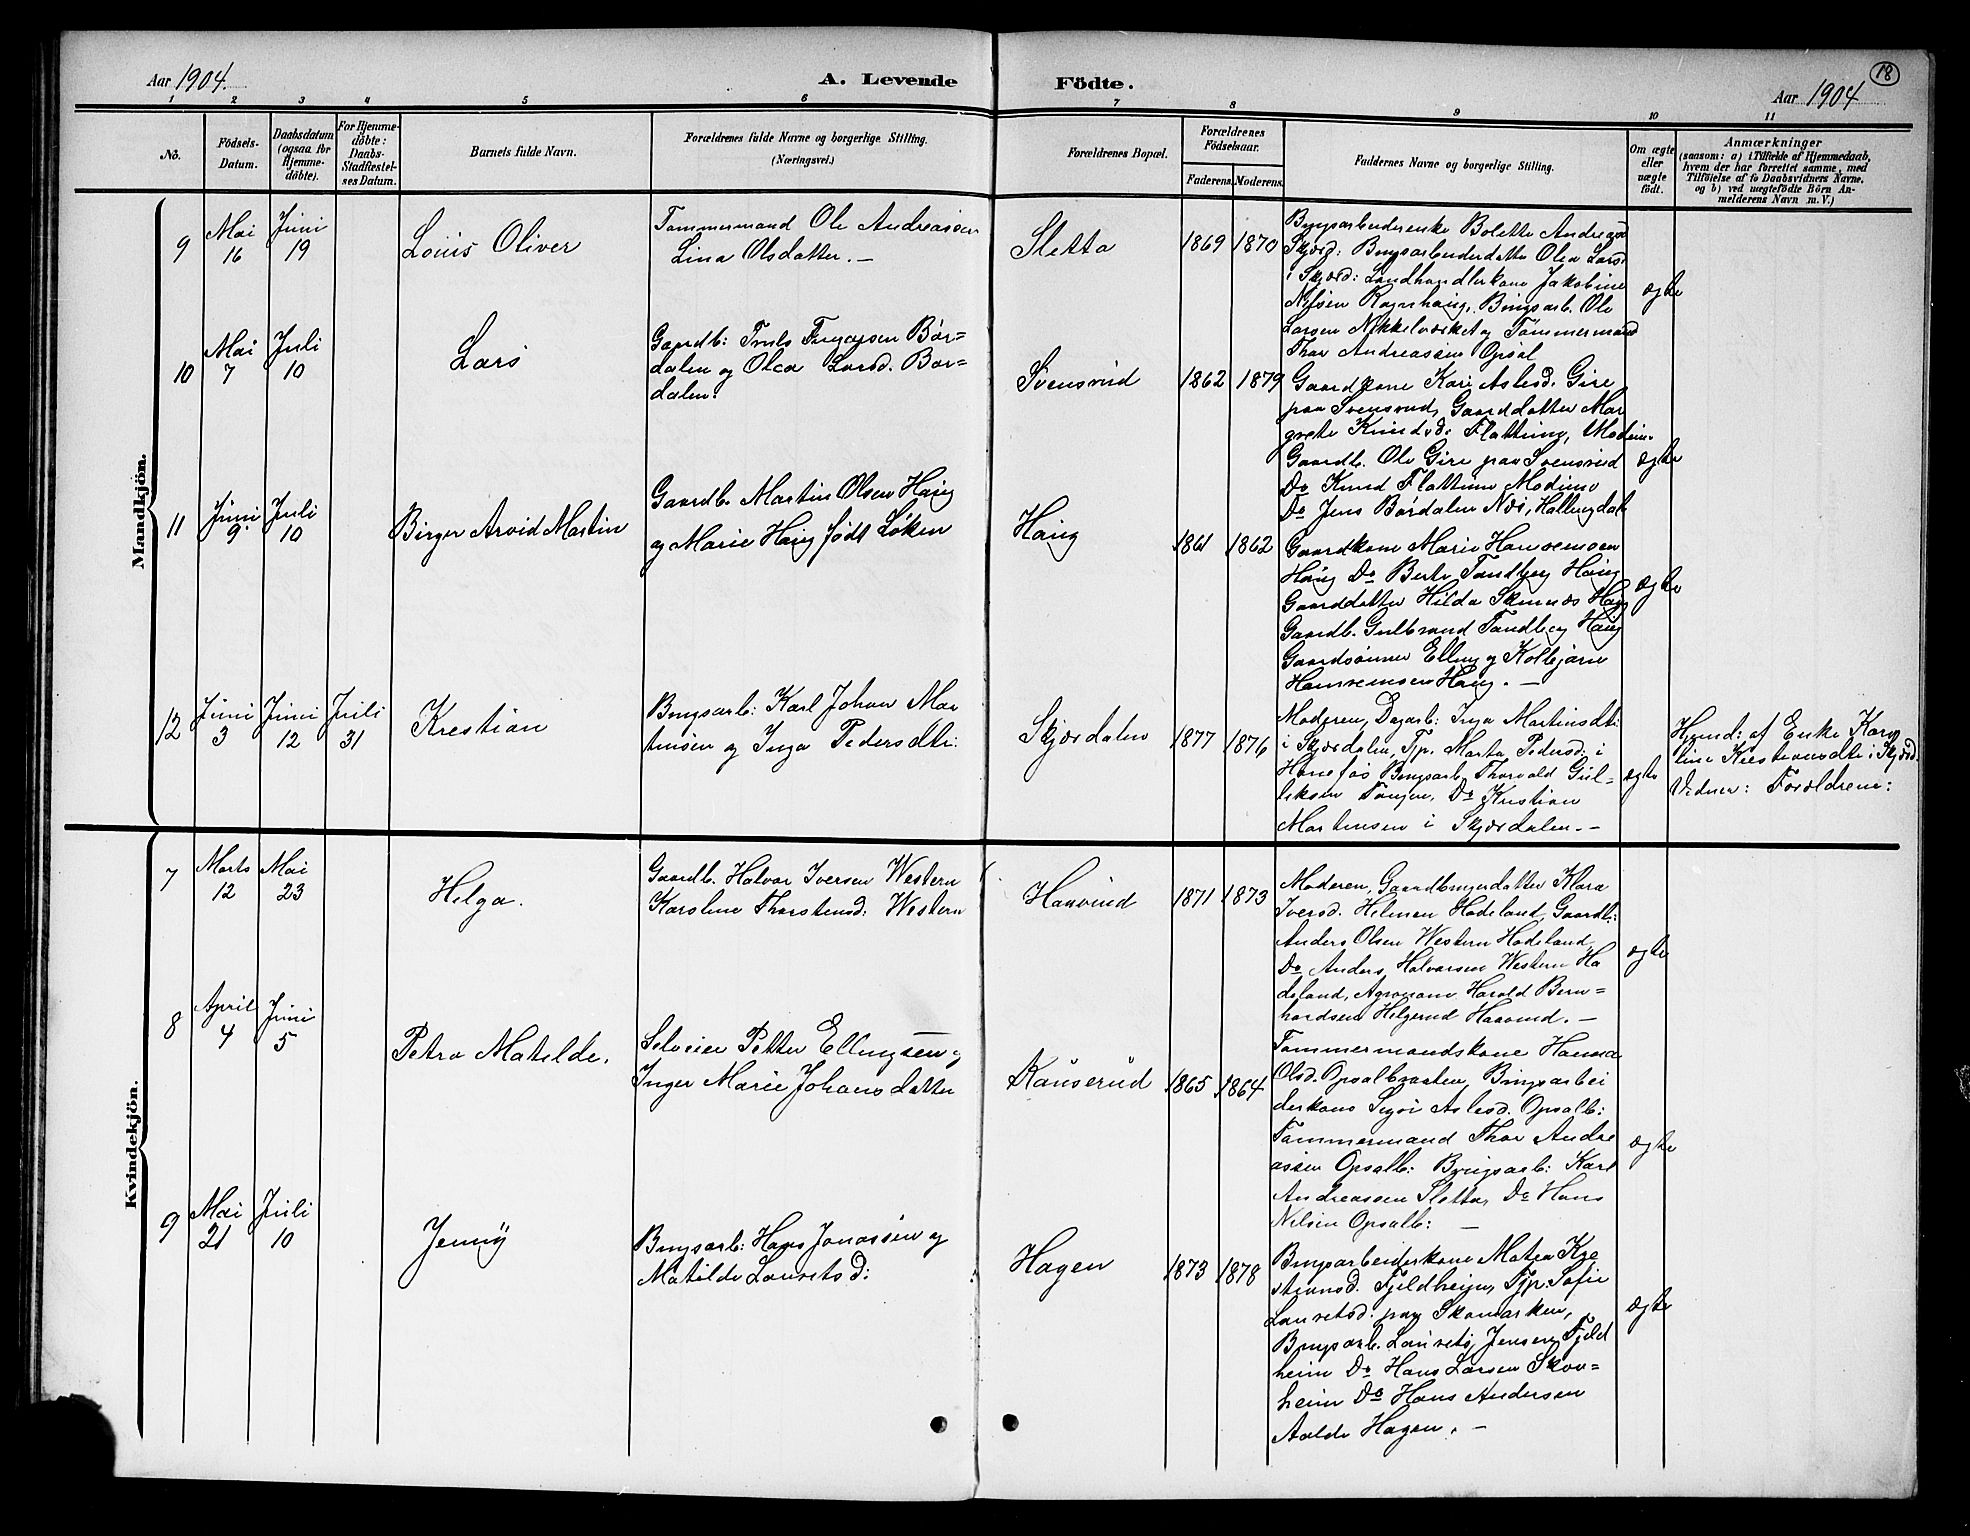 Aar 1904. A. Levende Födte. Aar 1904 18
1 2 3 4 5 6 7 8 9 10 11
No.
Födsels-
Datum.
Daabsdatum
(ogsaa for
Hjemme-
döbte).
For Hjemme-
döbte:
Daabs-
Stadfæstel-
ses Datum.
Barnets fulde Navn.
Forældrenes fulde Navne og borgerlige Stilling.
(Næringsvei.)
Forældrenes Bopæl.
Forældrenes
Födselsaar.
Faderens. Moderens.
Faddernes Navne og borgerlige Stilling.
Om ægte
eller
uægte
födt.
Anmærkninger
(saasom: a) i Tilfælde af Hjemmedaab,
hvem der har forrettet samme, med
Tilföielse af to Daabsvidners Navne,
og b) ved uægtefödte Börn An-
melderens Navn m. V.)
Mandkjön.
9
Mai
16
Juni
19
Louis Oliver
Tømmermand Ole Andreassen
Lina Olsdatter. —
Sletta
1869 1870
Brugsarbeiderenke Bolette Andreasd
Skjærd: Brugsarbeiderdatter Olea Larsd
i Skjærd: Landhandlerkone Jakobine
Nilsen Ragnhaug, Brugsarb. Ole
Larsen Nikkelværket og Tømmermand
Thor Andreassen Opsal
ægte
10
Mai
7
Juli
10
Lars
Gaardb: Truls Torgersen Bør=
dalen og Olea Larsd. Bør=
dalen.
Svensrud
1862 1879
Gaardkone Kari Aslesd. Gire
paa Svensrud, Gaarddatter Mar
grete Knudsd: Flattum, Modum
Gaardb. Ole Gire paa Svensrud
Do Knud Flattum Modum
Do Jens Børdalen Næs, Hallingdal
ægte
11
Juni
9
Juli
10
Birger Arvid Martin
Gaardb. Martin Olsen Haug
og Marie Haug født Løken
Haug
1861 1862
Gaardkone Marie Hansemoen
Haug Do Berte Tandberg Haug
Gaarddatter Hilda Skinnæs Haug
Gaardb. Gulbrand Tandberg Haug
Gaardsønner Elling og Kolbjørn
Hansemoen Haug. —
ægte
12
Juni
3
Juni
12
Juli
31
Krestian
Brugsarb: Karl Johan Mar
tinsen og Inga Pedersdtr:
Skjærdalen
1877 1876
Moderen, Dagarb: Inga Martinsdtr:
i Skjærdalen, Tjp. Marta Pedersd: i
Hønefos Brugsarb, Thorvald Gul-
leksen Tangen, Do Kristian
Martinsen i Skjærdalen. —
ægte
Hjemd: af Enke Karo
line Kristiansdtr i Skjærd.
Vidner: Forældrene:
Kvindekjön.
7
Marts
12
Mai
23
Helga.
Gaardb. Halvor Iversen Western
Karoline Thorstensd: Western
Haavrud
1871 1873
Moderen, Gaardbrugerdatter Klara
Iversd. Helmen Hadeland, Gaardb:
Anders Olsen Western Hadeland,
Do Anders Halvorsen Western Ha
deland, Agronom Harald Bern=
hardsen Helgerud Haavrud. —
ægte
8
April
4
Juni
5
Petra Matilde.
Selveier Petter Ellingsen og
Inger Marie Johansdatter
Kauserud
1865 1864
Tømmermandskone Hanna
Olsd. Opsalbraaten, Brugsarbei
derkone Sigri Aslesd. Opsalb:
Tømmermand Thor Andre
assen Opsalb: Brugsarb: Karl
Andreassen Sletta, Do Hans
Nilsen Opsalb: —
ægte
9
Mai
21
Juli
10
Jenny
Brugsarb: Hans Jonassen og
Matilde Lauretsd:
Hagen
1873 1878
Brugsarbeiderkone Matea Kre
stiansd. Fjeldheim, Tjp: Sofie
Lauretsd: paa Skamarken,
Brugsarb. Laurets Jensen Fjeld
heim Do Hans Larsen Skov=
heim Do Hans Andersen
Aolde Hagen. —
ægte